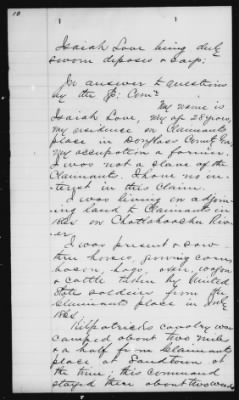 10
Isaiah Love being duly
sworn deposes & says:
In answer to questions
by the Sp: Comr
My name is
Isaiah Love, my age 28 years,
my residence on Claimants
place in County Ga,
my occupation a farmer.
I was not a slave of the
Claimants. I have no in-
terest in this Claim.
I was living on adjoin-
ing land to Claimants in
1864 on Chattahoochee Riv-
er.
I was present & saw
three horses, growing corn,
bacon, hogs, oxen, wagon
& cattle taken by United
State soldiers from the
Claimants place in July
1864.
Kilpatricks cavalry was
camped about two miles
& a half from Claimants
place at Sandtown at
the time; this command
stayed there about two weeks